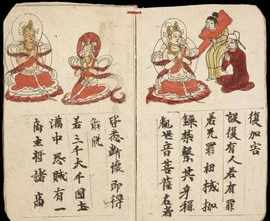 復加害
設復有人若有罪
若无罪杻械枷
鏁檢繫其身稱
觀世音菩薩名者
皆悉斷壞即得
解脫
若三千大千國土
滿中怨賊有一
商主將諸商